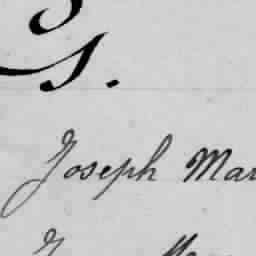 G.
Joseph Mar